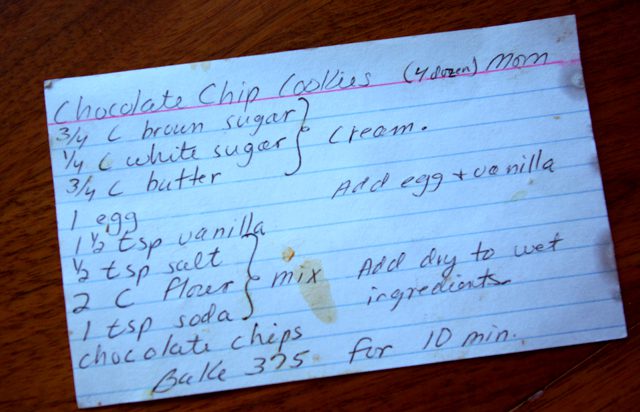 Chocolate Chip Cookies (4 dozen) Mom
3/4 C brown sugar
1/4 C white sugar } Cream.
3/4 C butter
Add egg + vanilla
1 egg
1 1/2 tsp vanilla
1/2 tsp salt
2 C flour } mix Add dry to wet ingredients
1 tsp soda
chocolate chips
Bake 375 for 10 min.